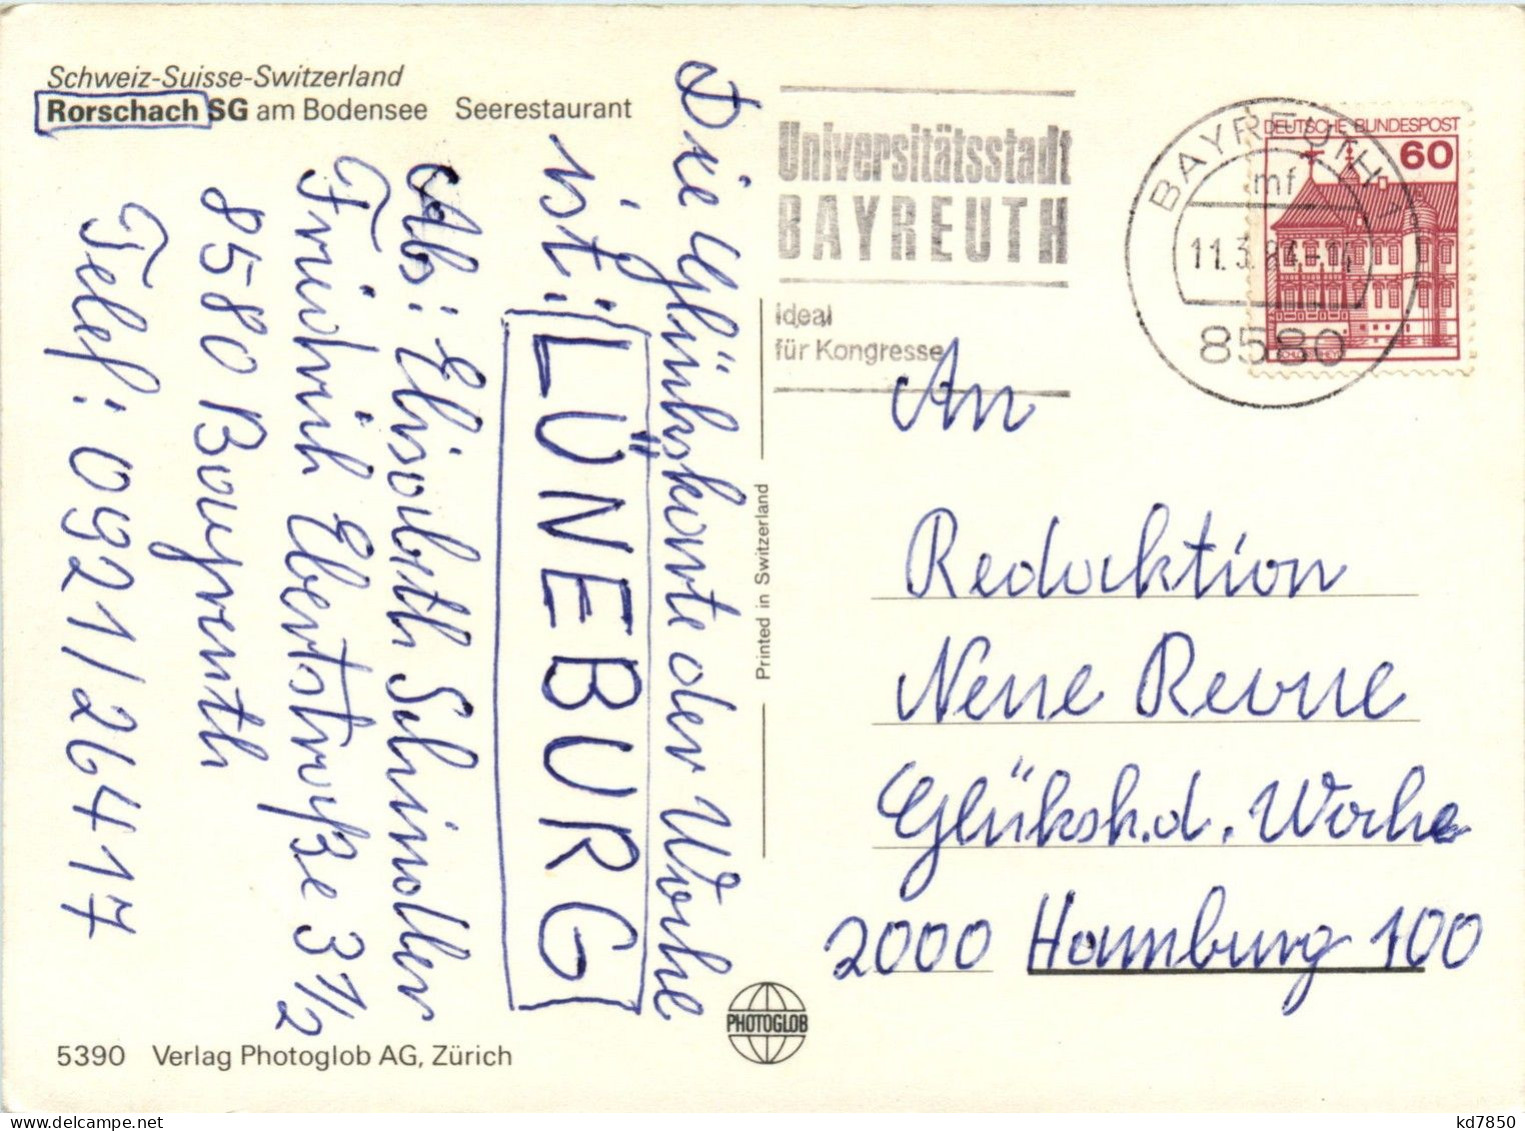 Schweiz-Suisse-Switzerland
Rorschach SG am Bodensee Seerestaurant
Die Glückskarte der Woche
ist: LÜNEBURG
Abs: Elisabeth Schindler
Friedrich Ebertstraße 3 1/2
8580 Bayreuth
Telef: 0921/26417
5390 Verlag Photoglob AG, Zürich
PHOTOGLOB
Printed in Switzerland
Universitätsstadt
BAYREUTH
Ideal
für Kongresse
BAYREUTH 1
mf
11.3.84-14
8580
DEUTSCHE BUNDESPOST
60
An
Redaktion
Neue Revue
Glücksk.d. Woche
2000 Hamburg 100
kd7850